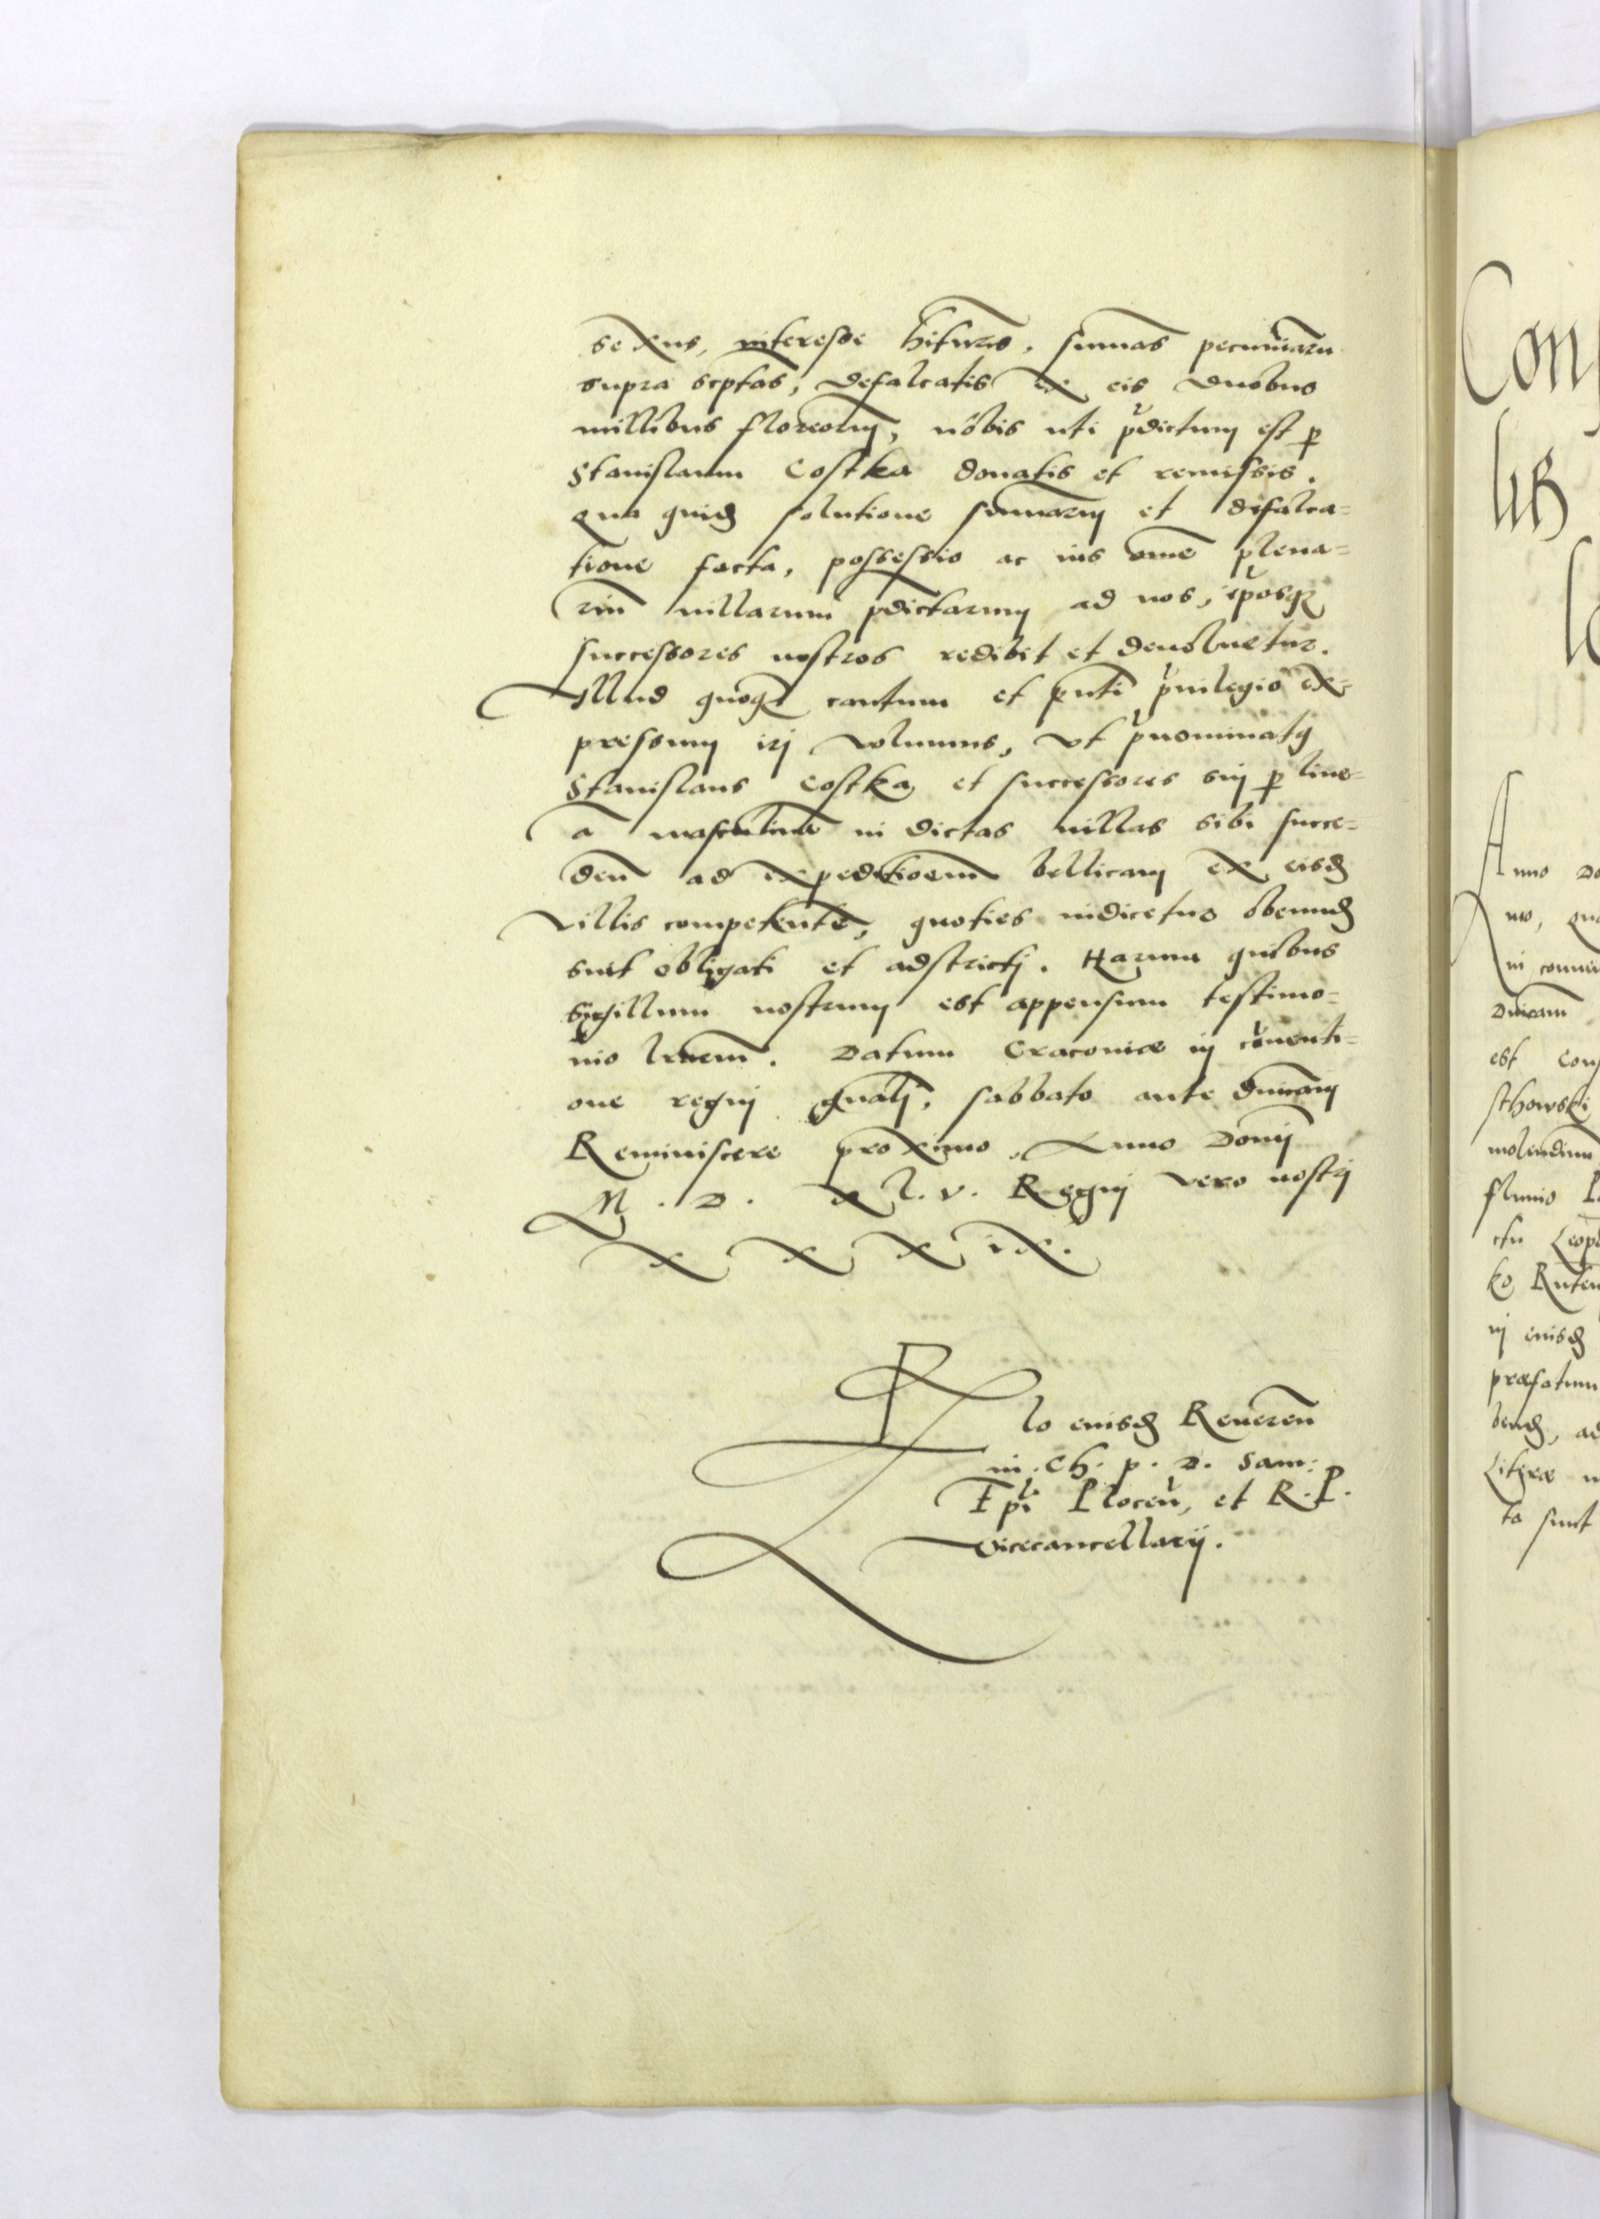 sexus, interesse hiturus, summas pecuniaru
supra scptas, defalcatis ex eis duobus
millibus florenoru, nobis uti pdictum est p
Stanislaum Costka donatis et remissis.
qua quid solutione summarum et difalca=
tione facta, possessio ac ius ome plena=
riu villarum pdictarum ad nos, iposq
successores nostros redibit et devoluetur.
Illud quoq cautum et pnti pvilegio ex=
pressum iri volumus, ut pnominatq
Stanislaus Costka et successores sui p line=
a masculina in dictas villas sibi succe=
den ad expeditioem bellicam ex eisd
villis competente, quoties indicetur obeund
sint obligati et adstricti. Harum quibus
Sigillum nostrum est appensum testimo=
nio lrarum. Datum Cracoviæ in coventi=
one regni gnali, sabbato ante dnicam
Reminiscere proximo, Anno Domi
M . D . X l . v . Regni vero nostri
X X X i X .
Rlo eiusd Reveren
in . Ch . p . D . Sam :
Epi Plocen, et R . P .
vicecancellarii .
Con
lit
Anno Do
in conven
Dnicam
est Con
schowski
molendinu
fluvio
ko Ruten
in eiusd
præfatum
bend, ad
ta sunt